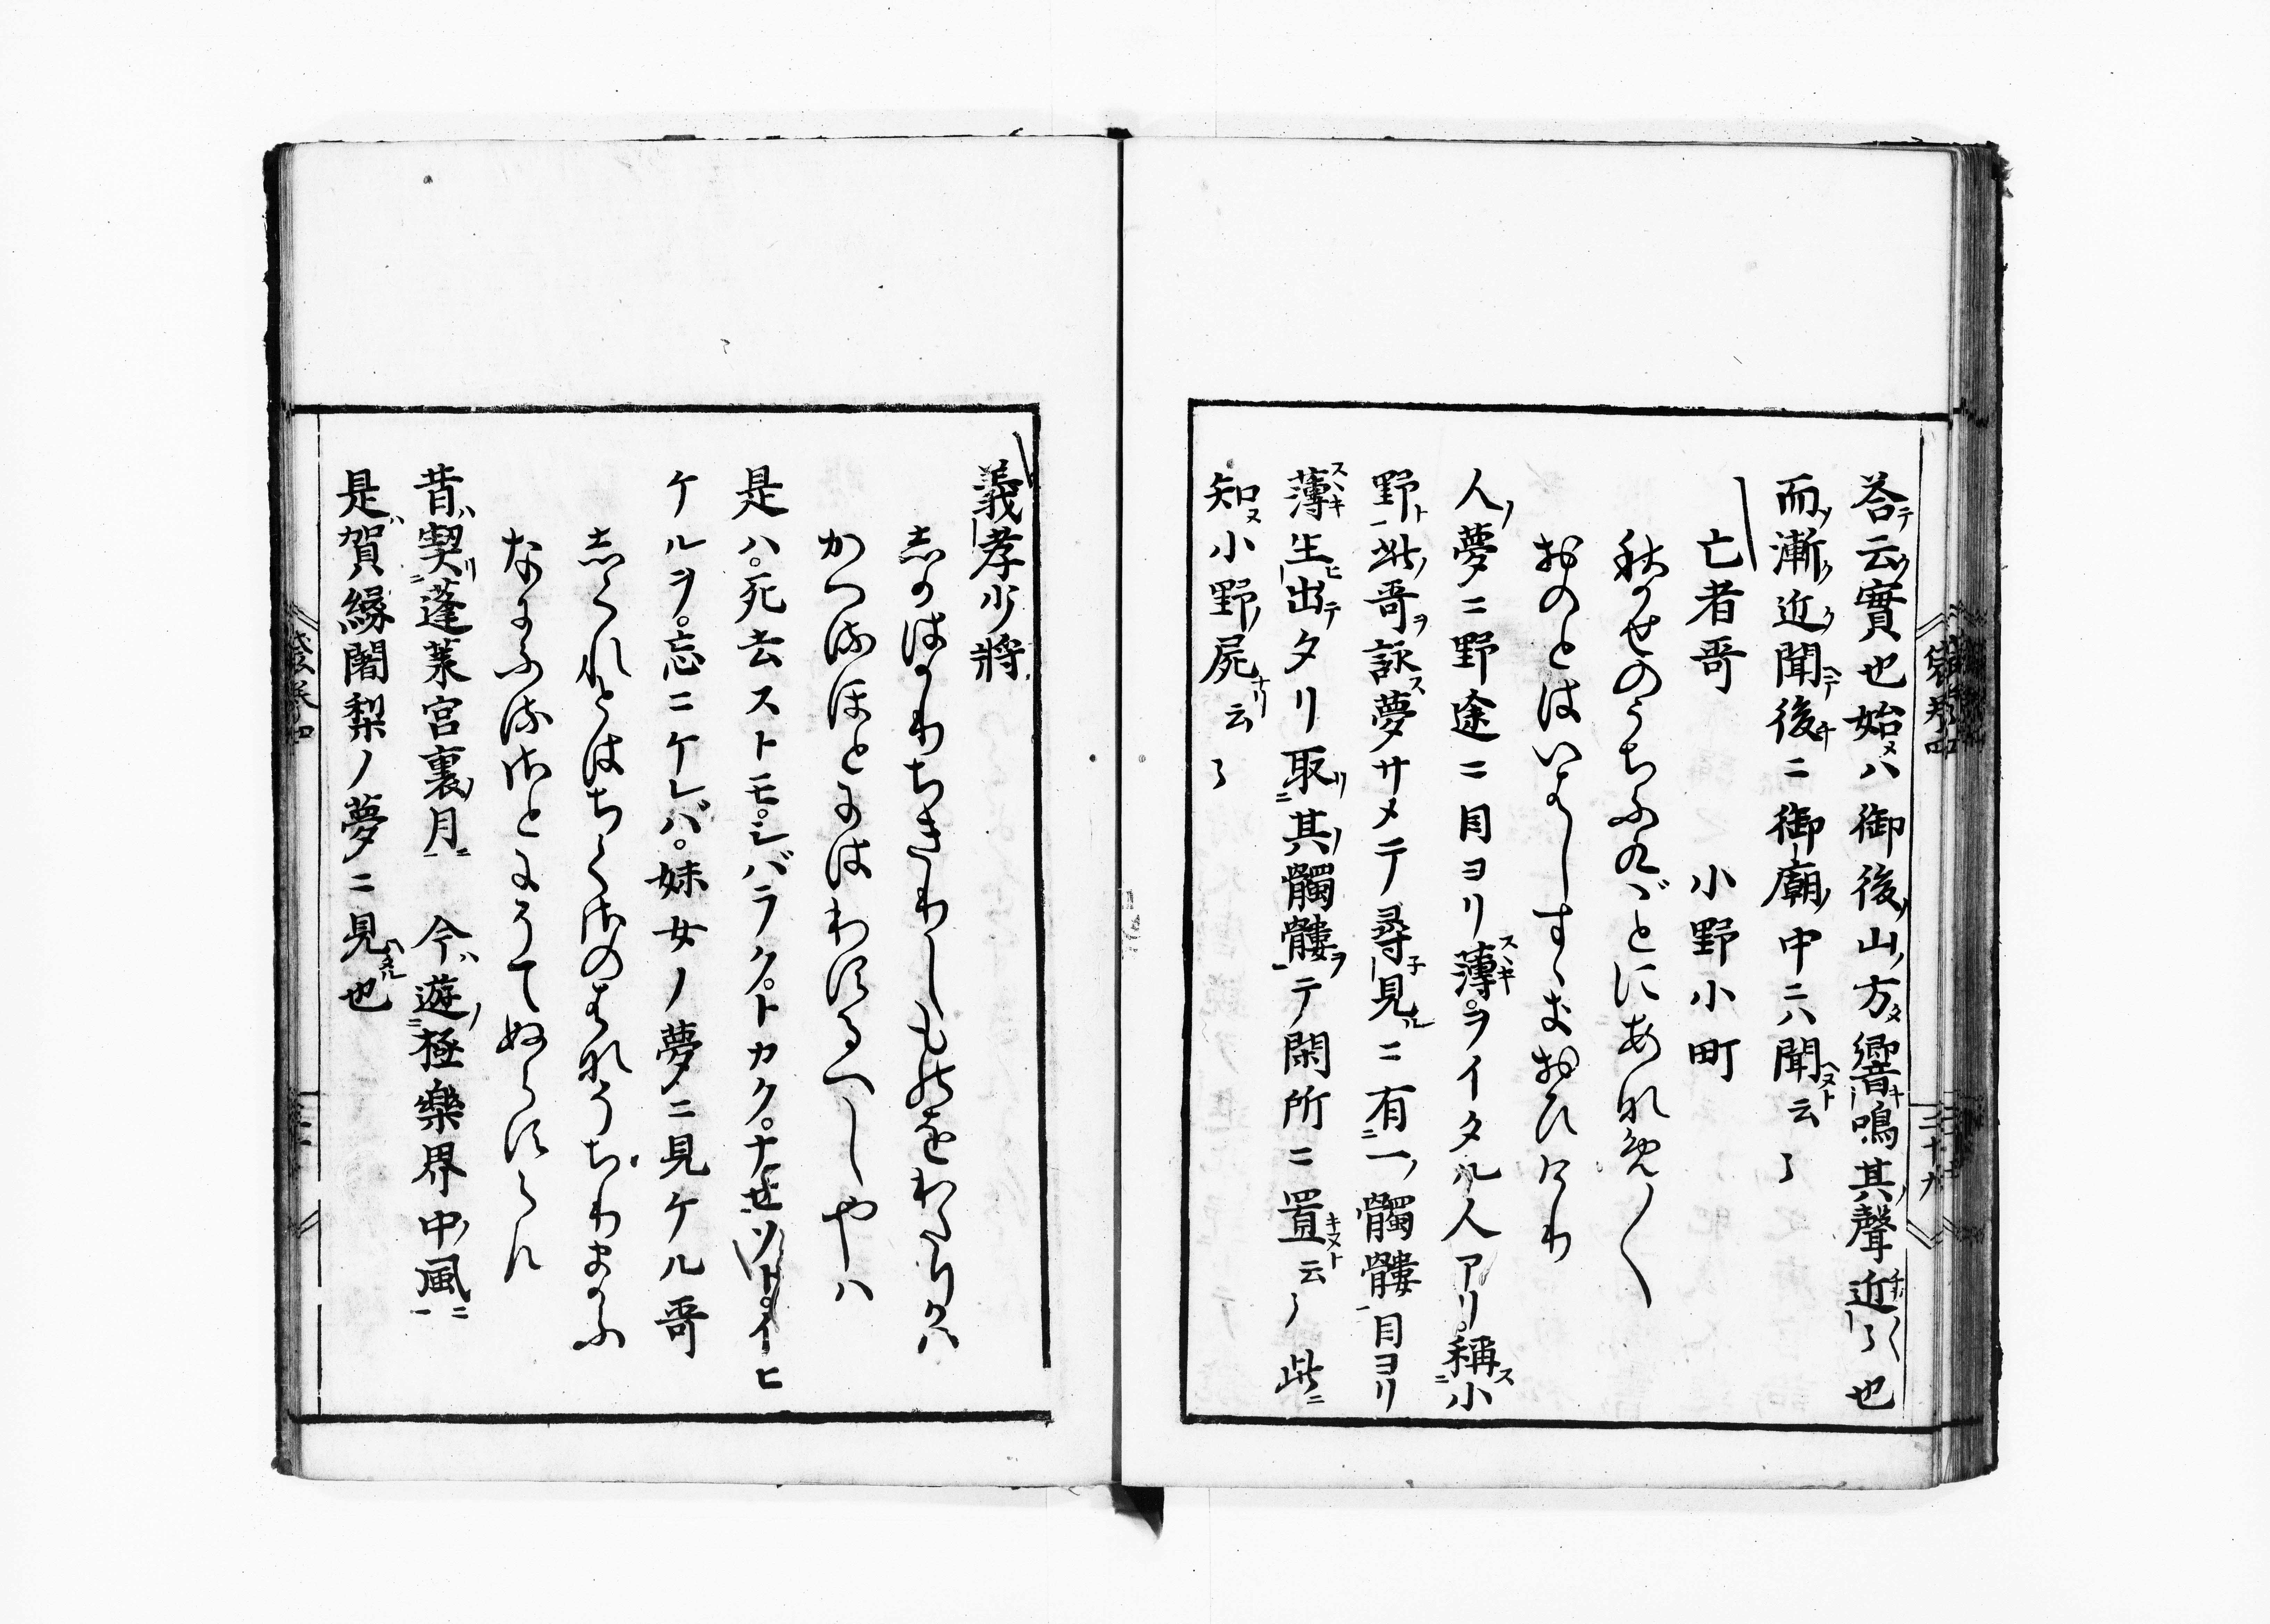 答テ云ク實也始メハ御後ノ山ノ方メ響キ鳴其ノ聲近チカク〱也
而ノ漸ク近ク聞ヘテ後チニ御廟ノ中ニハ聞ヘヌト云々
亡者哥　小野小町
秋かせのうちふくごとにあなめ〱
おのとはいはしすゝきおひけり
人ノ夢ニ野途ニ目ヨリ薄スヽキヲイタル人アリ稱ス小
野ト此ノ哥ヲ詠ス夢サメテ尋子見ルニ有一ノ髑髏目ヨリ
薄スヽキ生ヒ出テタリ取リ其ノ髑髏ヲテ閑所ニ置キヌト云々此ニ
知ヌ小野ノ屍ナリ云々
義孝少將
しかはかりちきりしものをわたり川
かへるほとにはわするへしやハ
是ハ死去ストモシバラクトカクナせソトイヒ
ケルヲ忘ニケレバ妹女ノ夢ニ見ケル哥
しくれとはちくさのはなそちりまかふ
なにふるさとにそてぬらすらん
昔ハ契リ蓬莱宮裏ノ月ニ　今ハ遊ノ極樂界中ノ風ニ
是ハ賀縁闍梨ノ夢ニ見ヘタル也
袋巻四
三十九